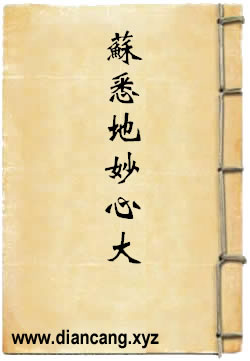 蘇悉地妙心大
www.diancang.xyz